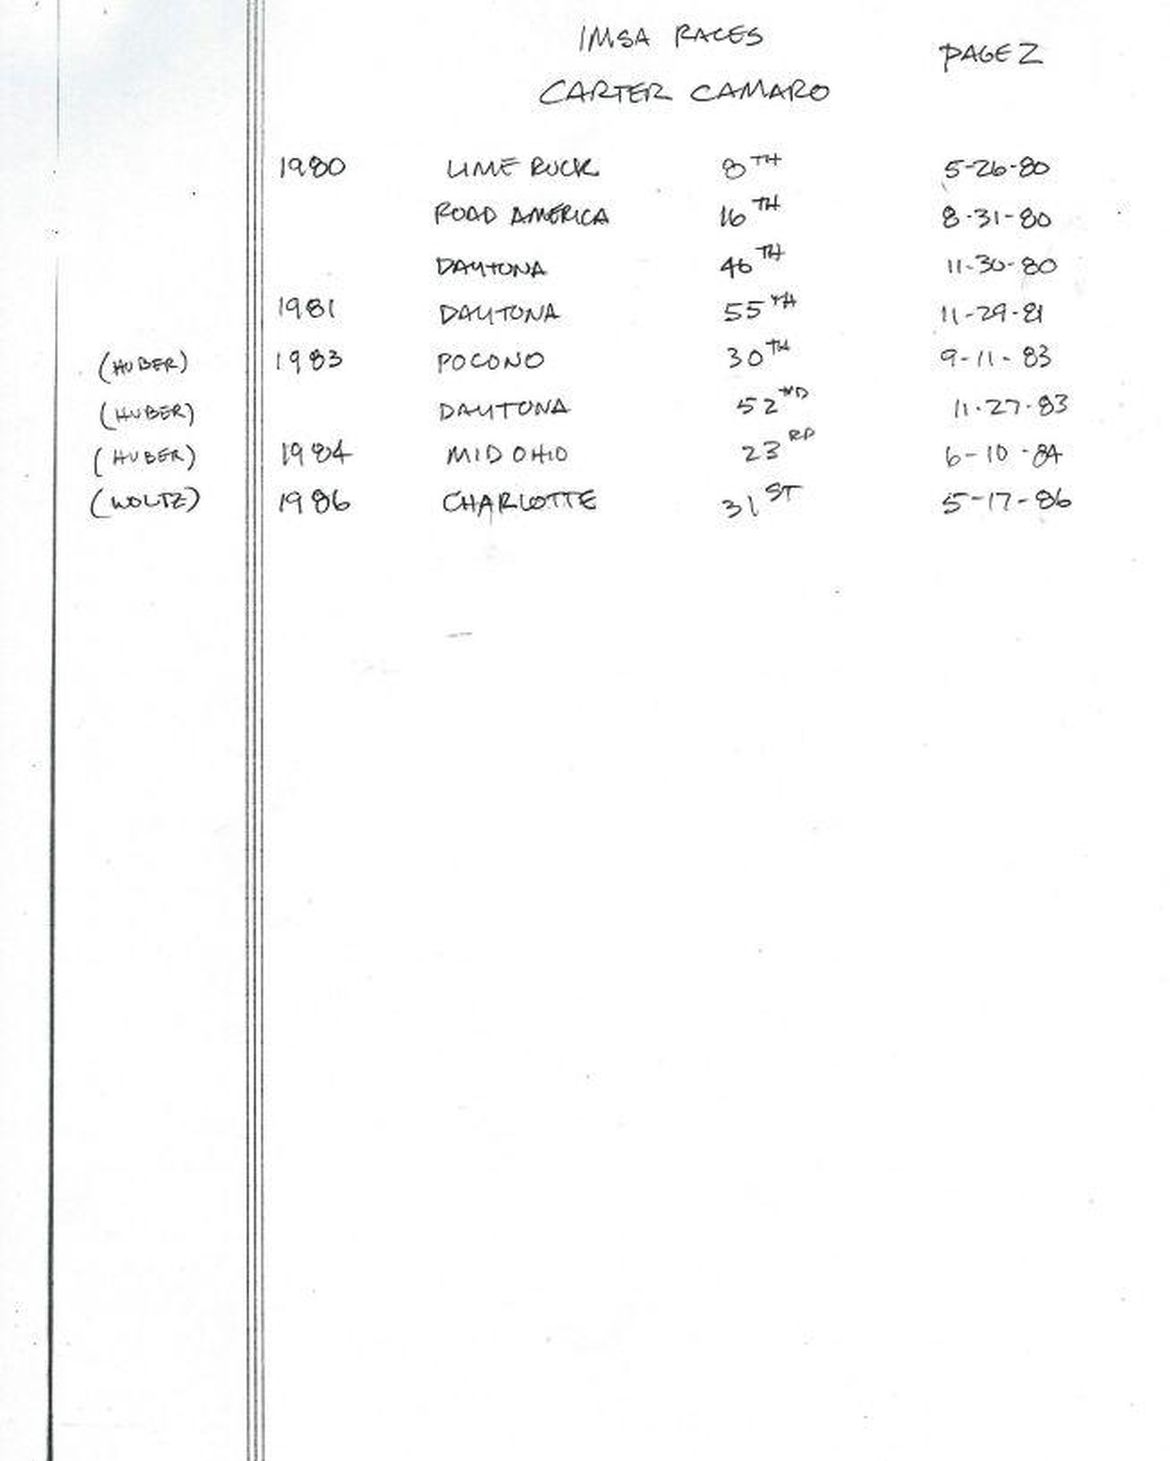 IMSA RACES PAGE 2
CARTER CAMARO
1980 LIME ROCK 8TH 5-26-80
ROAD AMERICA 16TH 8-31-80
DAYTONA 46TH 11-30-80
1981 DAYTONA 55TH 11-29-81
(HUBER) 1983 POCONO 30TH 9-11-83
(HUBER) DAYTONA 52ND 11-27-83
(HUBER) 1984 MID OHIO 23RD 6-10-84
(WOLTZ) 1986 CHARLOTTE 31ST 5-17-86